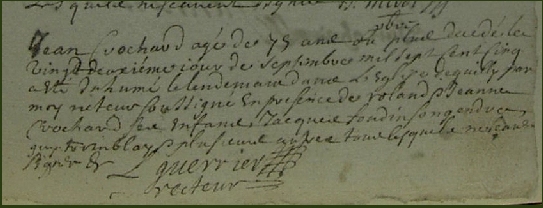 Jean Crochard agé de 75 ans ou plus decédé le
vingt deuxiéme jour de septembre mil sept cent cinq
a eté inhumé le lendemain dans l'Eglise de quilly par
moy recteur soussigné En presence de roland & Jeanne
Crochard ses Enfants, Jacques son gendre
plusieurs autres tous lesquels ne scavent
signer &
L guerrier
recteur